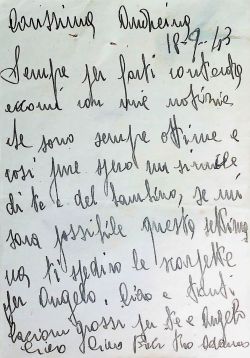 Carissima Andreina
18-9-43
Sempre per farti contenta
eccomi con mie notizie
che sono sempre ottime e
così pure spero un simile
di te e del bambino, se mi
sara possibile questa settima
na ti spediro le scarpette
per Angelo. Ciao e tanti
bacioni grossi per te e Angelo
Ciao Ciao Baci tuo